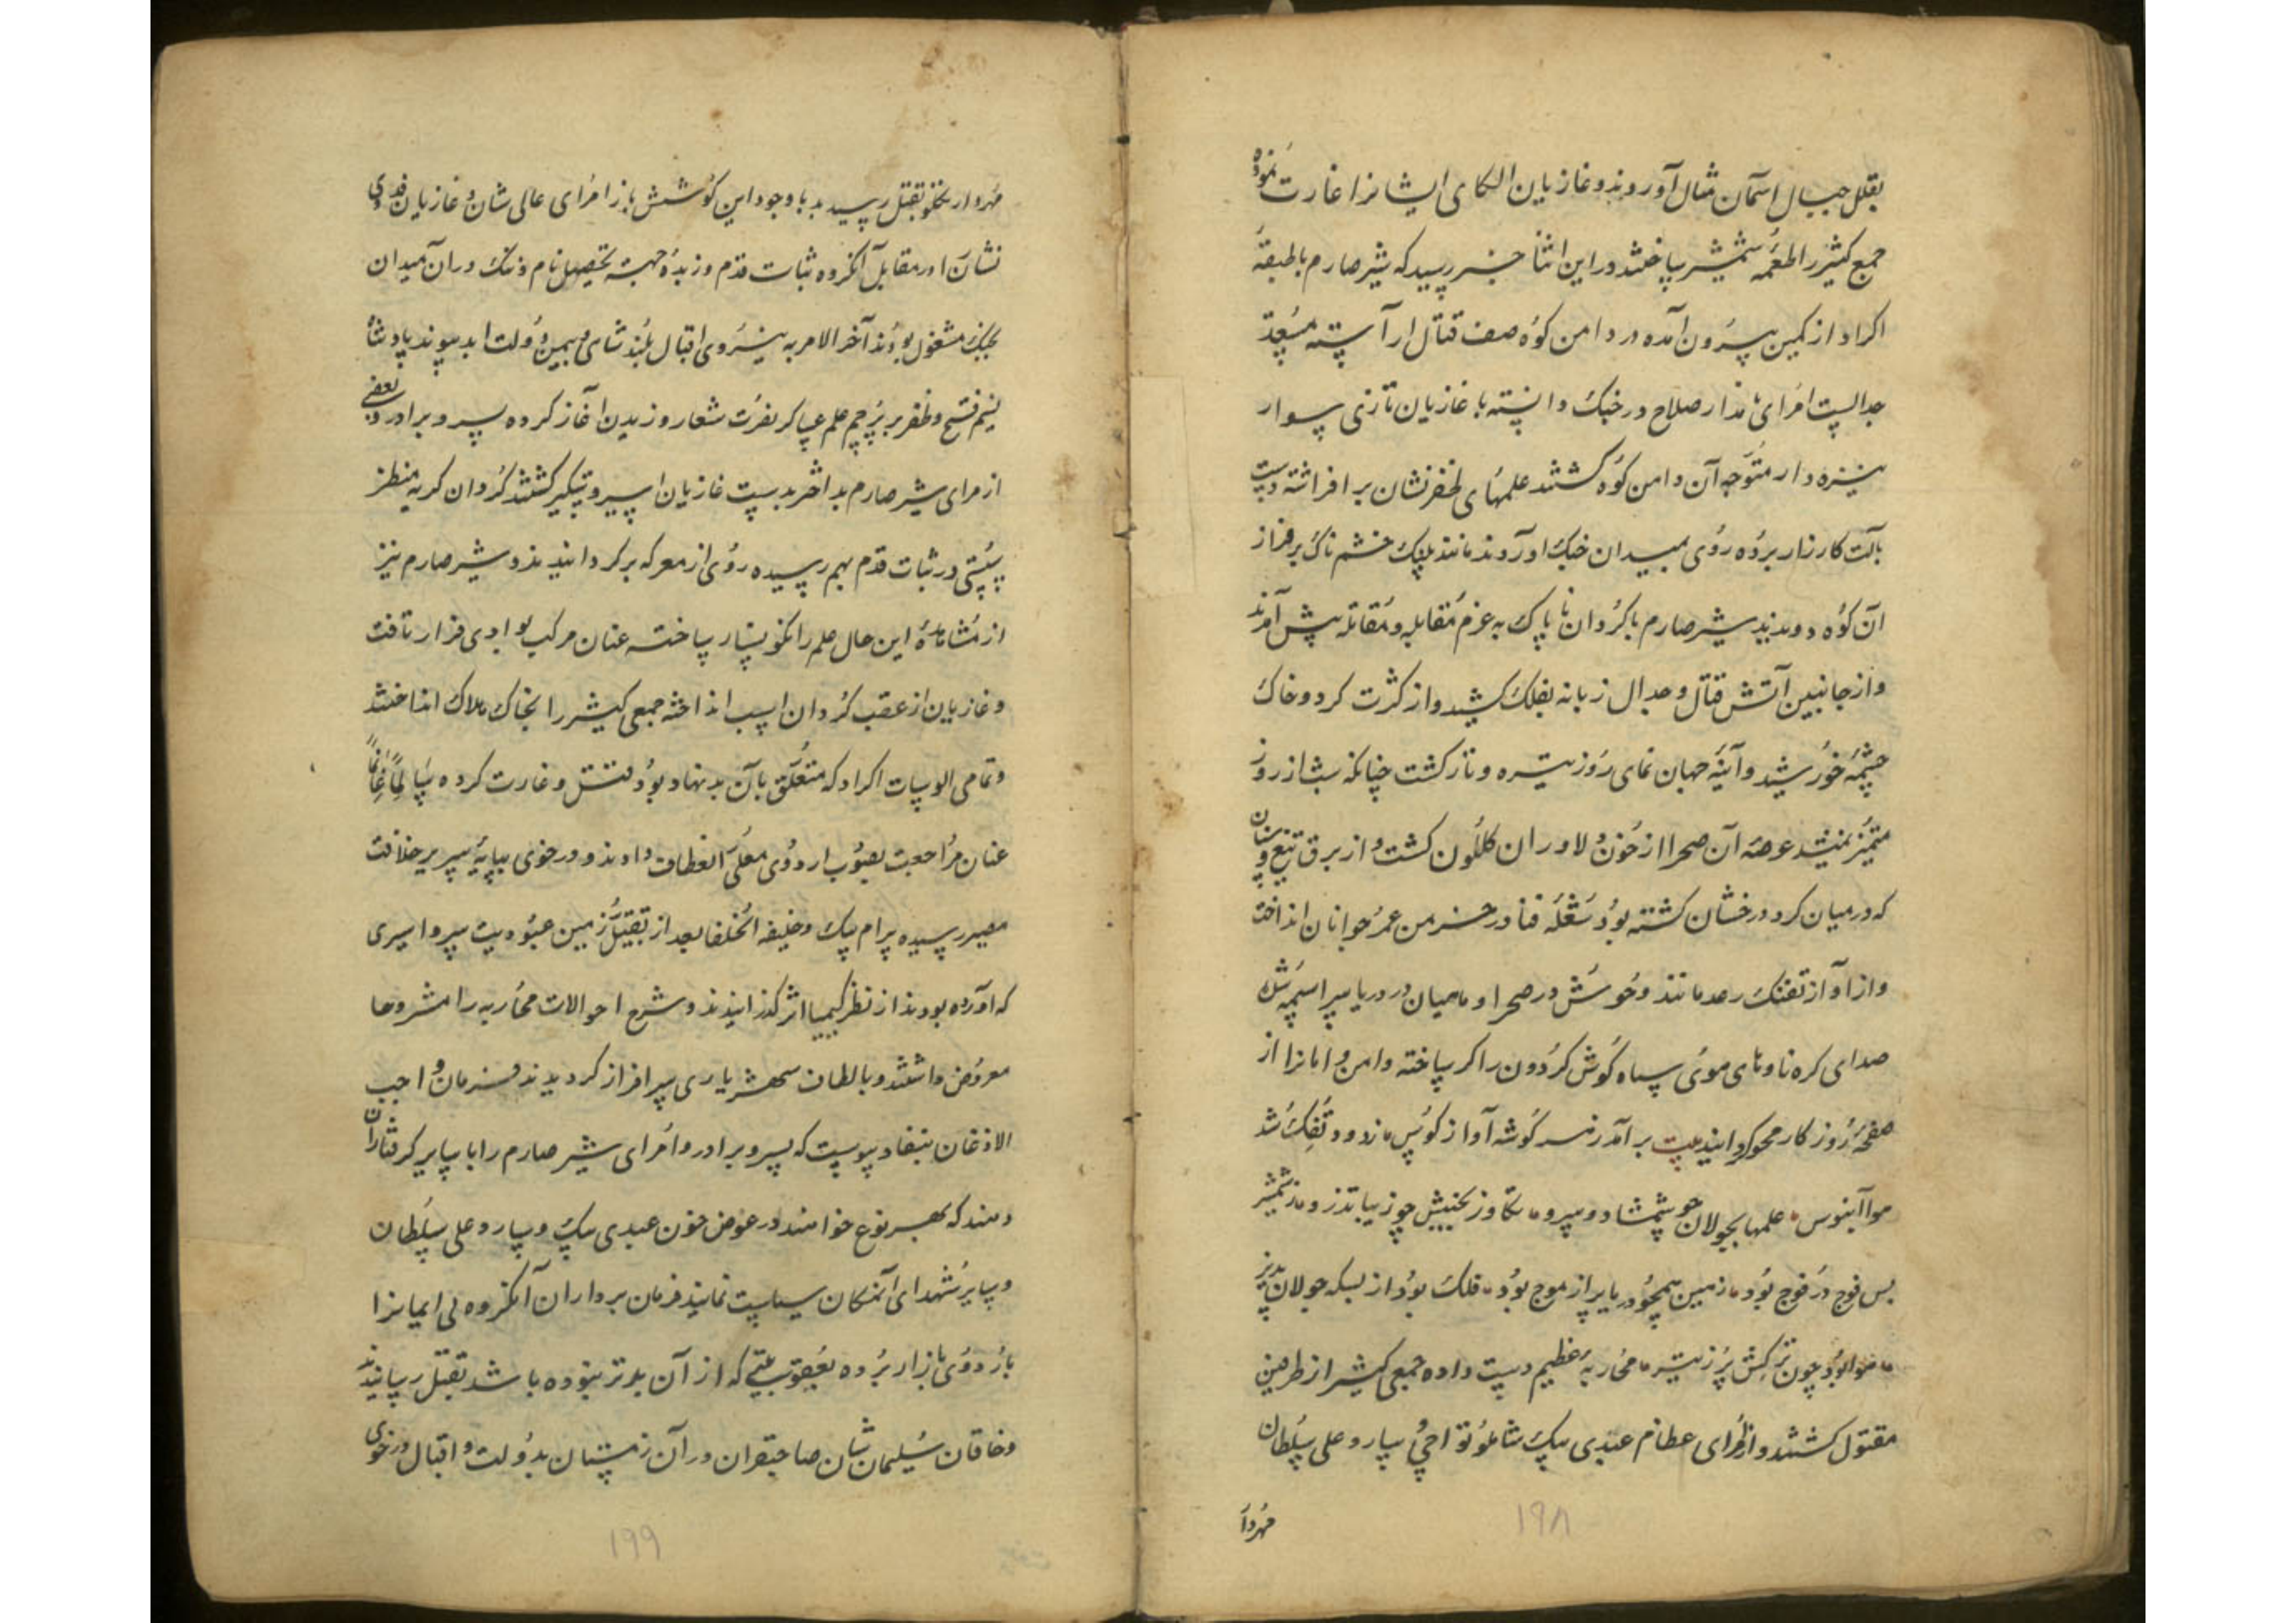 بقلل جبال آسمان مثال آوردند و غازیان الکای ایشانرا غارت نموده
جمع کثیر را طعمه شمشیر ساختند در این اثنا خبر رسید که شیر صارم با طبقهٔ
اکراد از کمین بیرون آمده در دامن کوه صف قتال آراسته مستعد
جدالست امرای نامدار صلاح در جنگ دانسته با غازیان تازی سوار
نیزه دار متوجه آن دامن کوه گشتند علمهای ظفرنشان برافراشته دست
بآلت کارزار برده روی بمیدان جنگ آوردند مانند پلنک خشم ناک بر فراز
آن کوه دویدند شیر صارم با کردان ناپاک به عزم مقابله و مقاتله پیش آمدند
و از جانبین آتش قتال و جدال زبانه بفلک کشید و از کثرت کرد و خاک
چشمهٔ خورشید و آینهٔ جهان نمای روز تیره و تار کشت چنانکه شب از روز
متمیز نمیشد عرصه آن صحرا از خون دلاوران کلکون کشت و از برق تیغ و سنان
که در میان کرد درخشان کشته بود شعلهٔ فنا در خرمن عمر جوانان انداخت
و از آواز تفنک رعد مانند وحوش در صحرا و ماهیان در دریا سراسیمه شده
صدای کره نا و نای موئی سپاه کوش کردون را کر ساخته و امن و امانرا از
صفحهٔ روزکار محو کردانید بیت برآمد ز هر کوشه آواز کوس ز دود تفک شد
هوا آبنوس علمها بجولان چو شمشاد و سرو تکاوز بجنبش چو زیبا تذرو ز شمشیر
بس فوج در فوج بود زمین همچو دریا پر از موج بود فلک بود از بسکه جولان پذیر
هوا بود چون ترکش پر ز تیر محاربهٔ عظیم دست داده جمعی کثیر از طرفین
مقتول کشتند و از امرای عظام عبدی بیک شاملو تواجی و سارو علی سلطان
مهردار
۱۹۸
مهردار تکلو بقتل رسید با وجود این کوشش باز امرای عالی شان و غازیان فدوی
نشان در مقابل آنکروه ثبات قدم ورزیده جهة تحصیل نام و ننک در آن میدان
بجنک مشغول بودند آخر الامر به نیروی اقبال بلند شاهی و بیمن دولت ابد پیوند پادشاه
نسیم فتح و ظفر بر پرچم علم عساکر نصرت شعار وزیدن آغاز کرده پسر و برادر و بعضی
از امرای شیر صارم بداختر بدست غازیان اسیر و دستکیر کشتند کردان کریه منظر
سستی در ثبات قدم بهم رسیده روی از معرکه برکردانیدند و شیر صارم نیز
از مشاهدهٔ این حال علم را نکونسار ساخته عنان مرکب بوادی فرار تافت
و غازیان از عقب کردان اسب انداخته جمعی کثیر را بخاک هلاک انداختند
و تمامی الوسات اکراد که متعلق بآن بدنهاد بود قتل و غارت کرده سالماً غانماً
عنان مراجعت بصوب اردوی معلی انعطاف دادند و در خوی بپایهٔ سریر خلافت
مصیر رسیده بیرام بیک و خلیفه الخلفا بعد از تقبیل زمین عبودیت سر و اسیری
که آورده بودند از نظر کیمیا اثر کذرانیدند و شرح احوالات محاربه را مشروحا
معروض داشتند و بالطاف شهریاری سرافراز کردیدند فرمان واجب
الاذعان بنفاد پیوست که پسر و برادر و امرای شیر صارم را با سایر کرفتاران
دهند که بهر نوع خواهند در عوض خون عبدی بیک و سارو علی سلطان
و سایر شهدای آنمکان سیاست نمایند فرمان برداران آنکروه بی ایمانرا
باردوی بازار برده بعقوبتی که از آن بدتر نبوده باشد بقتل رسانیدند
و خاقان سلیمان شان صاحبقران در آن زمستان بدولت و اقبال در خوی
۱۹۹